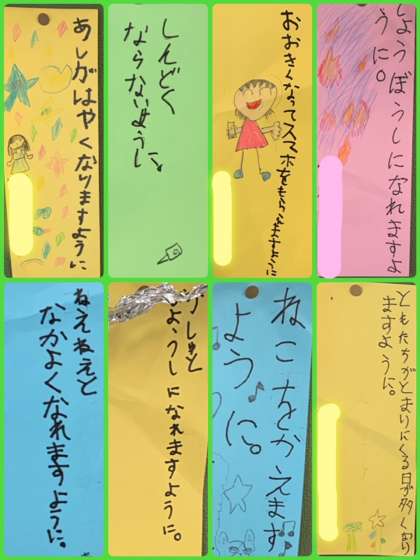 あしがはやくなりますように
しんどく
ならないように。
おおきくなってスマホをもらえますように
しょうぼうしになれますよ
うに。
ねえねえと
なかよくなれますように。
になれますように。
ねこをかえます
ように。
ともだちがとまりにくる日が多くなり
ますように。